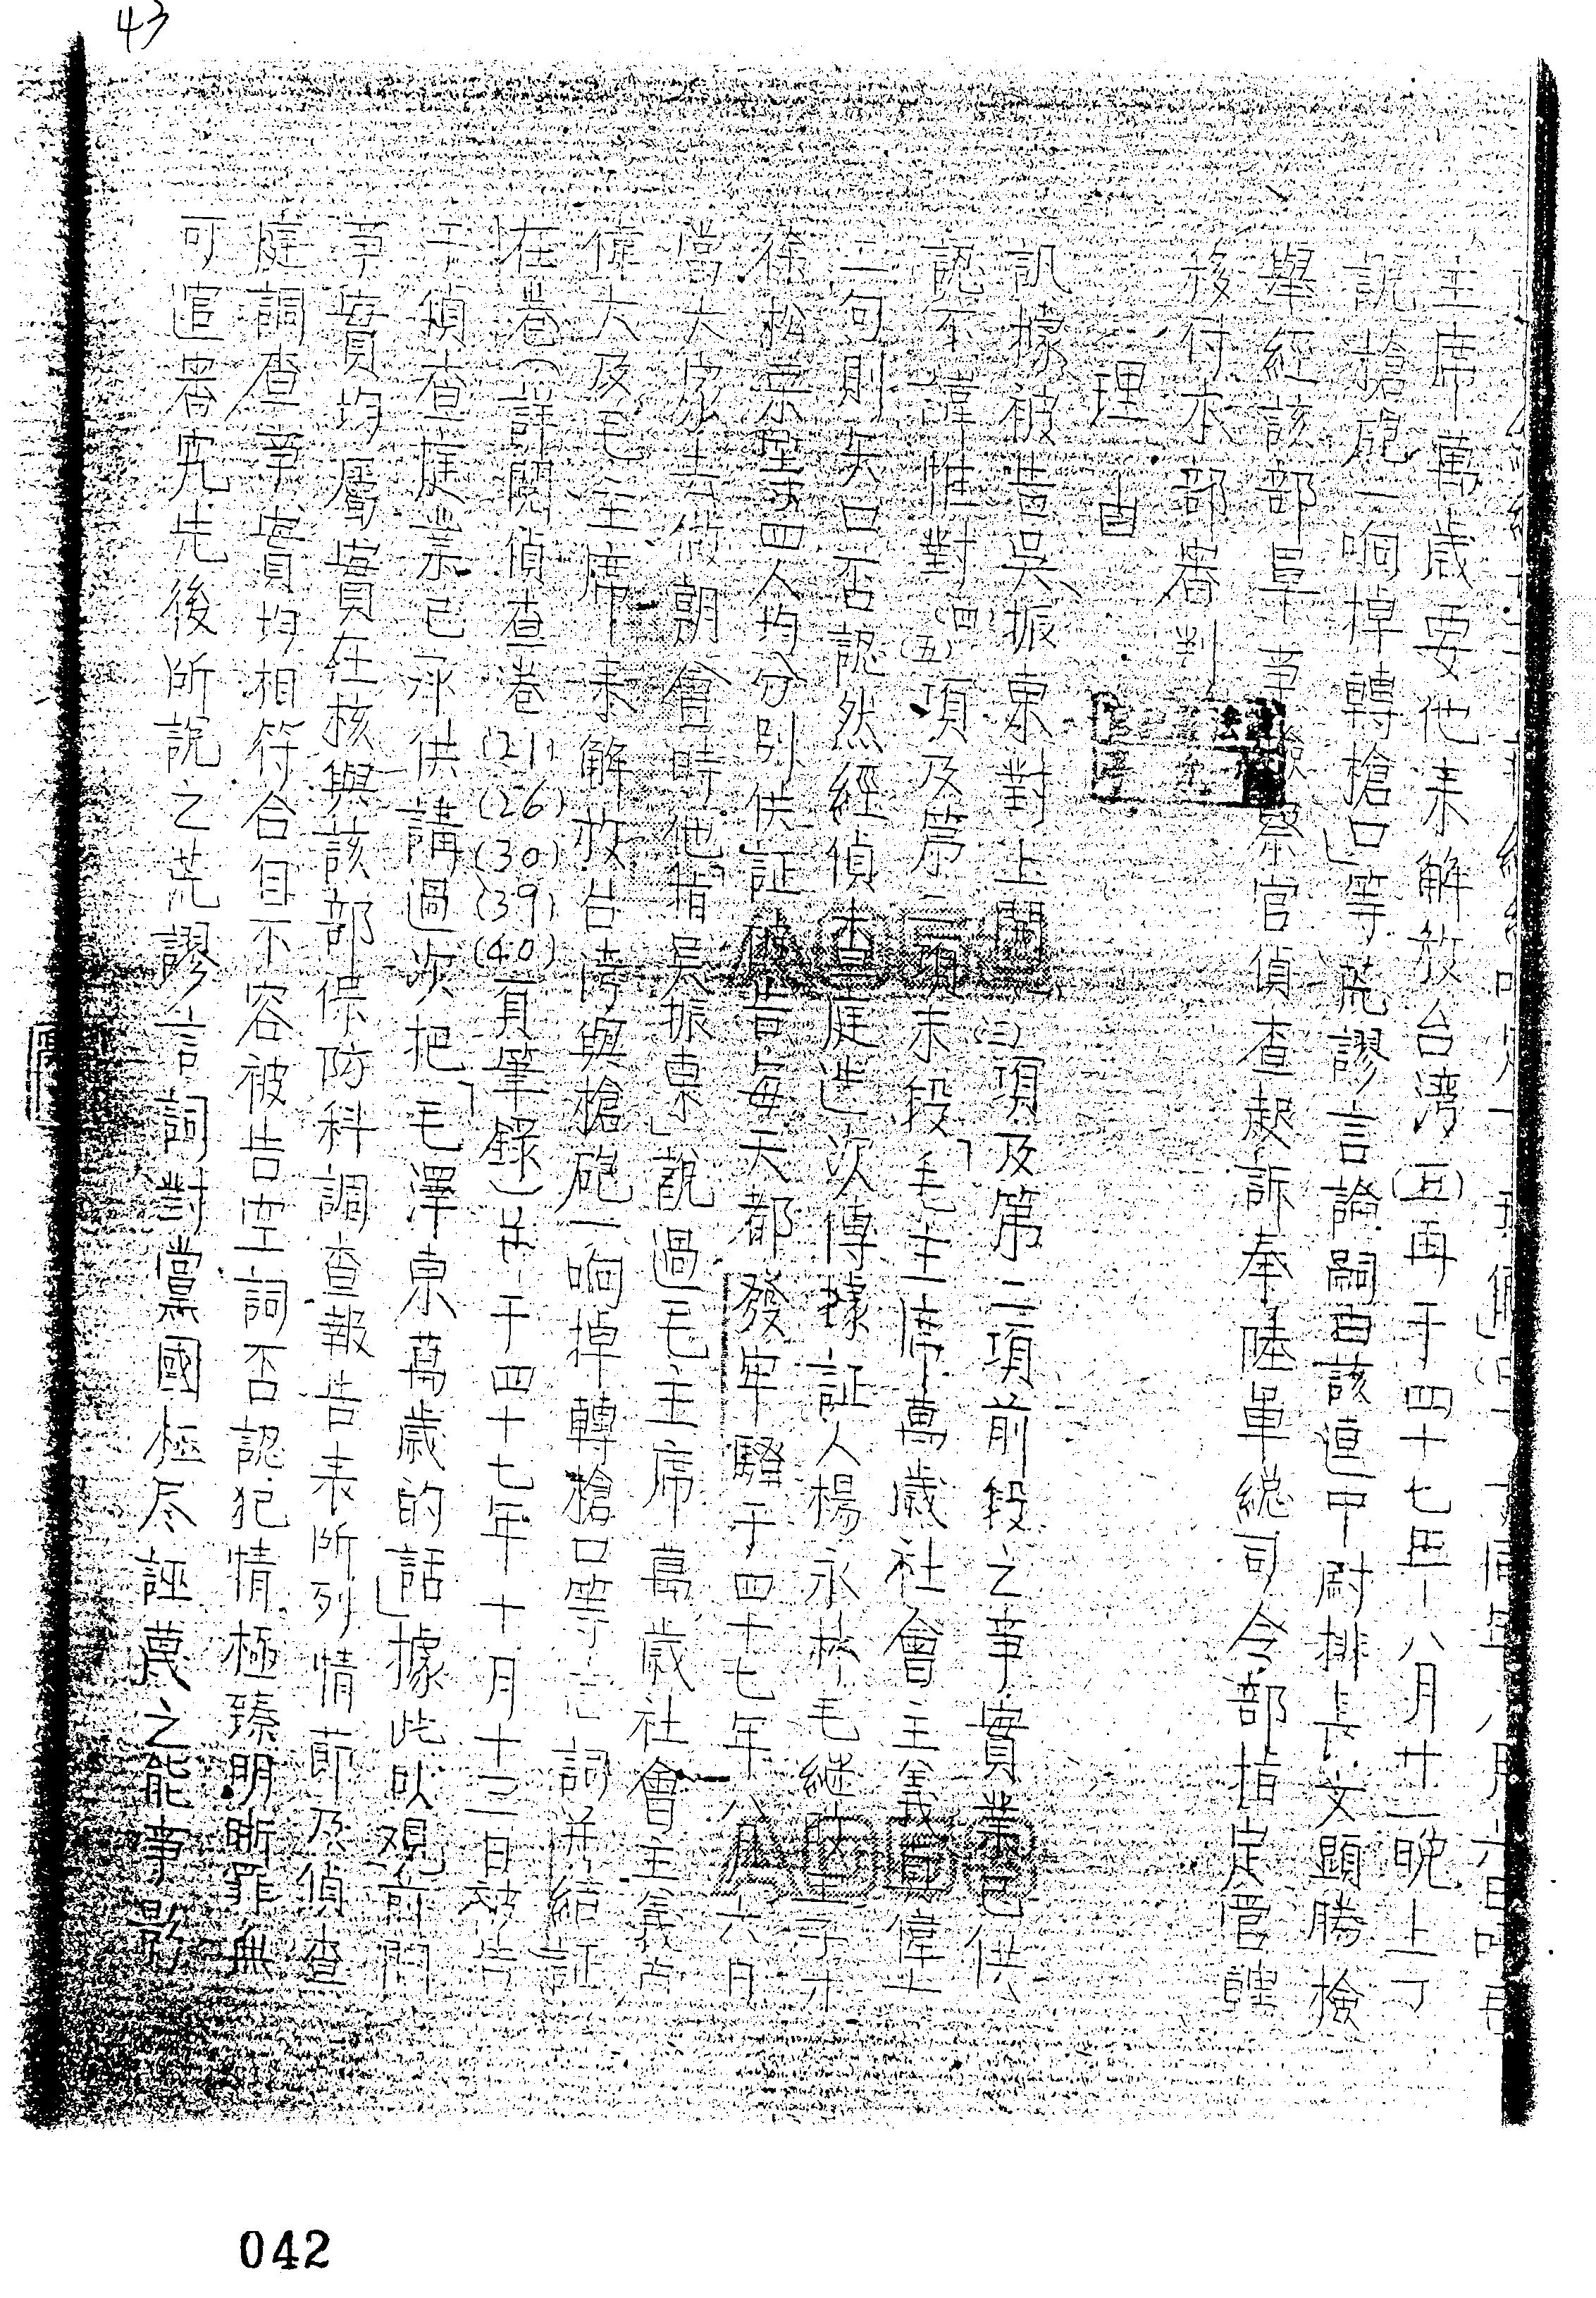 43
主席萬歲要他来解放台湾(五)再于四十七年八月廿一晚上了
說槍砲一响掉轉槍口」等荒謬言論嗣由該連中尉排長文顕勝檢
舉經該部軍事檢察官偵查起訴奉陸軍総司令部指定管轄
移付本部審判
理由
訊據被告吳振東對上開(三)項及第二項前段之事實業已供
認不諱惟對(四)(五)項及第二項末段「毛主席萬歲社會主義真偉大
二句則矢口否認然經偵查庭迭次傳據証人楊永林毛継
徐松
四人均分別供証被告每天都發牢騷于四十七年八月六月
當大家去做朝會時他指吳振東」說過毛主席萬歲社會主義真
偉大及毛主席来解放台湾與槍砲一响掉轉槍口等
詞并結証
在卷(詳閱偵查卷(21)(26)(30)(39)(40)頁筆錄)并于四十七年十月十三日被告
于偵查庭業已承供講過次把「毛澤東萬歲的話」據此以觀前開
事實均屬實在核與該部保防科調查報告表所列情節及偵查
庭調查事實均相符合自不容被告空詞否認犯情極臻明晰罪無
可逭審究先後所說之荒謬言詞對黨國極尽誣蔑之能事影
042